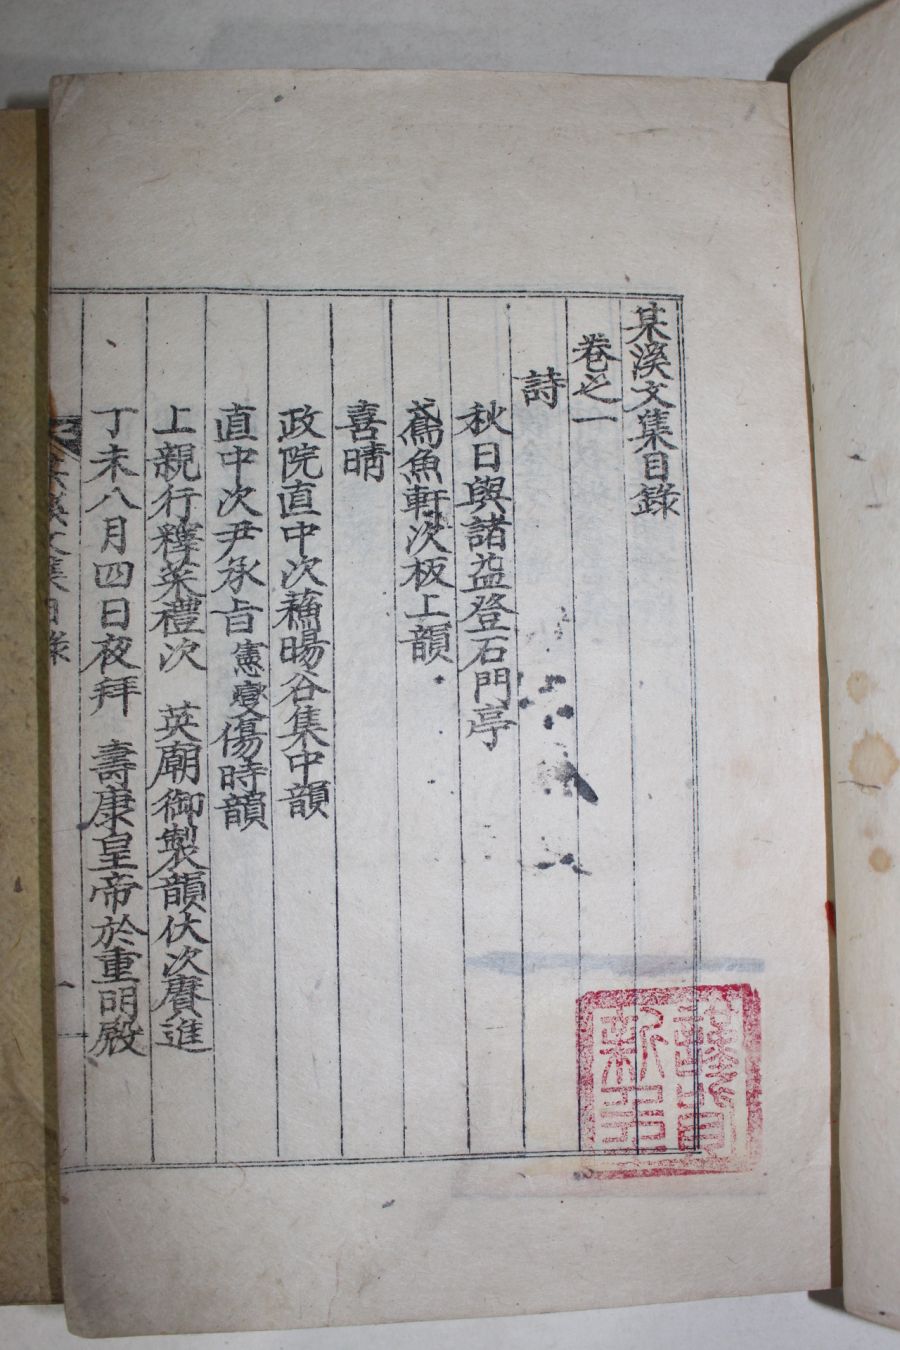 某溪文集目錄
卷之一
詩
秋日與諸益登石門亭
鳶魚軒次板上韻
喜晴
政院直中次蘓暘谷集中韻
直中次尹承旨憲燮傷時韻
上親行釋菜禮次 英廟御製韻伏次賡進
丁未八月四日夜拜 壽康皇帝於重明殿